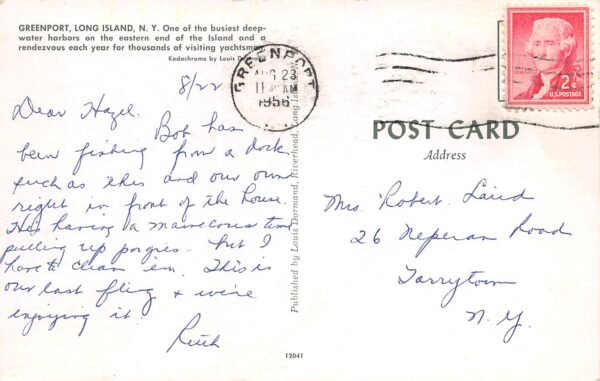 GREENPORT, LONG ISLAND, N. Y. One of the busiest deep-
water harbors on the eastern end of the Island and a
rendezvous each year for thousands of visiting yachtsmen.
Kodachrome by Louis
8/22
Dear Hazel.
Bob has
been fishing from a dock
such as this and our own
right in front of the house.
He's having a marvelous time
pulling up porgies. but I
have to clean 'em. This is
our last fling + we're
enjoying it.
Ruth
12041
Published by Louis Dormand, Riverhead, Long
GREENPORT
AUG 23
AM
1956
2¢
U.S. POSTAGE
POST CARD
Address
Mrs. Robert Laird
26 Neperan Road
Tarrytown
N. Y.